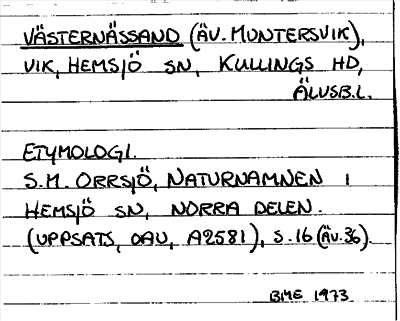 VÄSTERNÄSSAND (ÄV. MUNTERSVIK),
VIK, HEMSJÖ SN, KULLINGS HD,
ÄLVSB.L.
ETYMOLOGI.
S.M. ORRSJÖ, NATURNAMNEN I
HEMSJÖ SN, NORRA DELEN.
(UPPSATS, OAU, A2581), S.16 (ÄV.36).
BME 1973